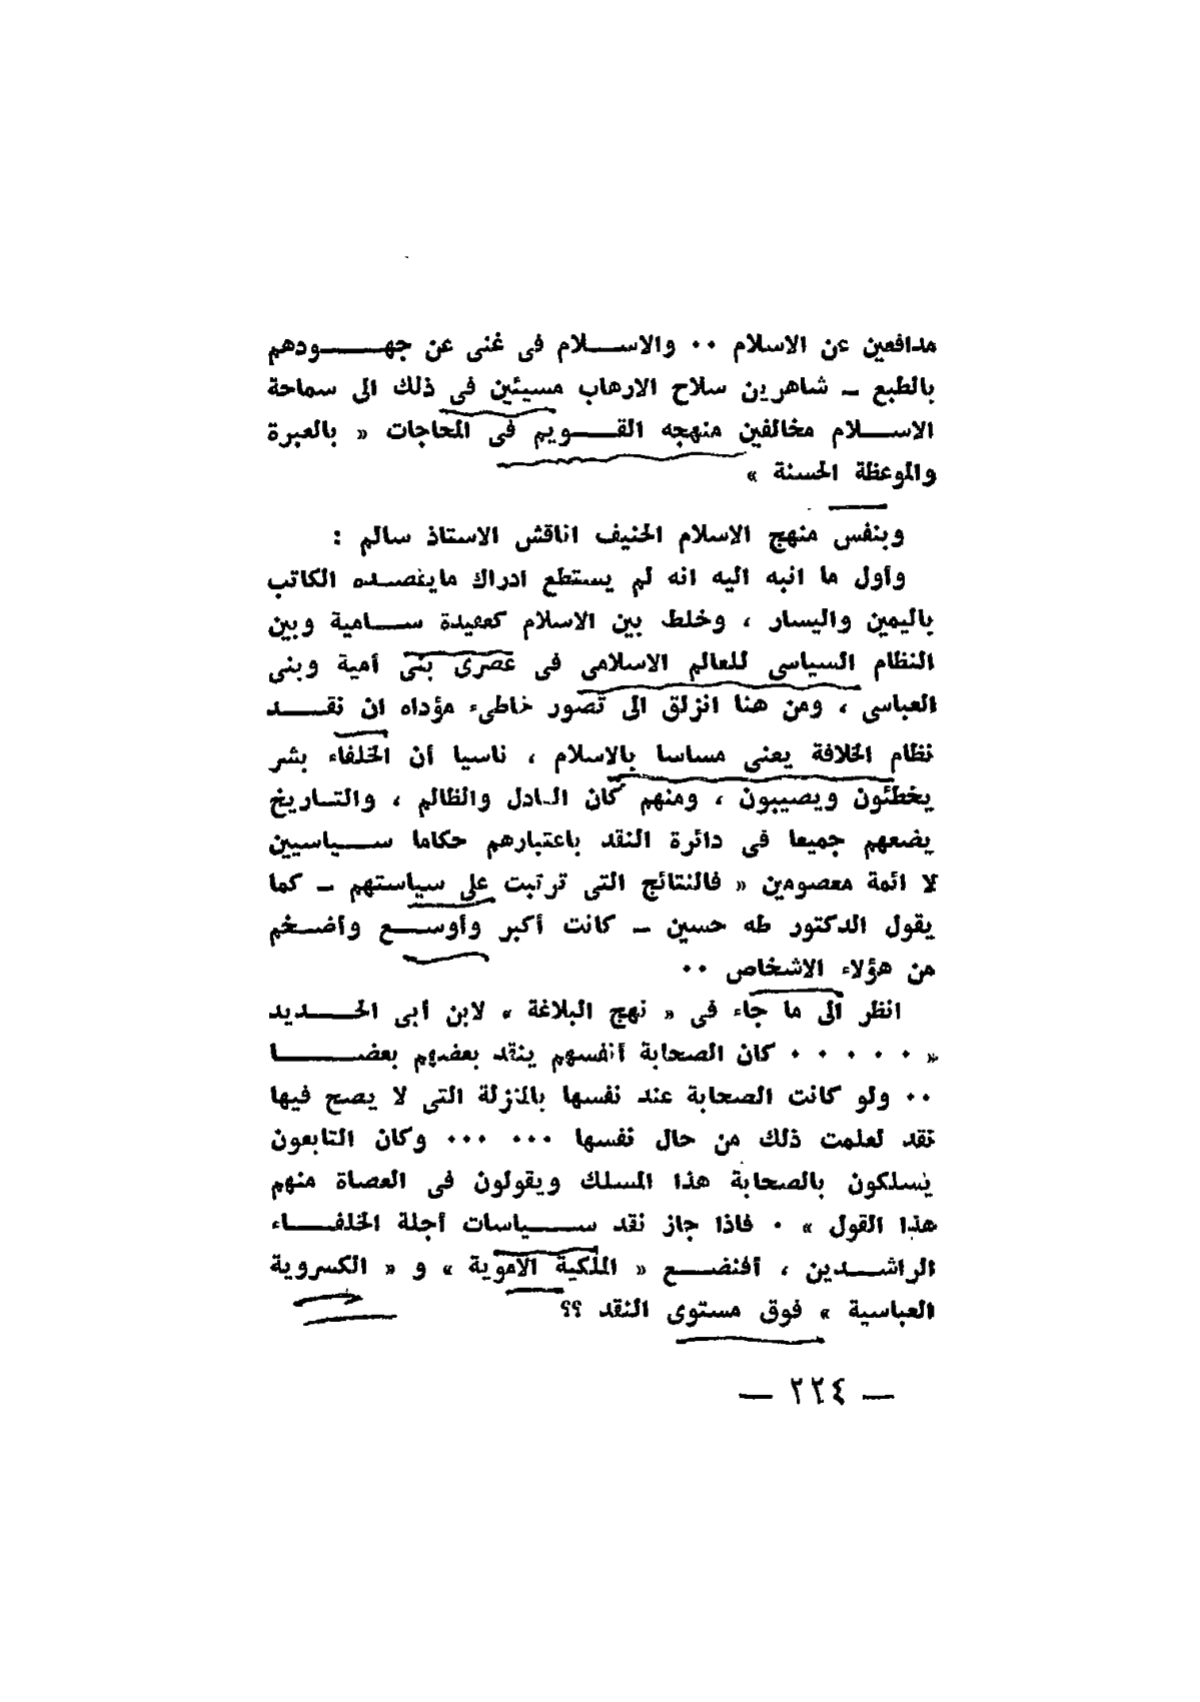 مدافعين عن الاسلام ٠٠ والاسلام فى غنى عن جهودهم
بالطبع ــ شاهرين سلاح الارهاب مسيئين فى ذلك الى سماحة
الاسلام مخالفين منهجه القويم فى المحاجات « بالعبرة
والموعظة الحسنة »
وبنفس منهج الاسلام الحنيف اناقش الاستاذ سالم :
وأول ما انبه اليه انه لم يستطع ادراك مايقصده الكاتب
باليمين واليسار ، وخلط بين الاسلام كعقيدة سامية وبين
النظام السياسى للعالم الاسلامى فى عصرى بنى أمية وبنى
العباسى ، ومن هنا انزلق الى تصور خاطىء مؤداه ان نقد
نظام الخلافة يعنى مساسا بالاسلام ، ناسيا أن الخلفاء بشر
يخطئون ويصيبون ، ومنهم كان العادل والظالم ، والتاريخ
يضعهم جميعا فى دائرة النقد باعتبارهم حكاما سياسيين
لا ائمة معصومين « فالنتائج التى ترتبت على سياستهم ــ كما
يقول الدكتور طه حسين ــ كانت أكبر وأوسع وأضخم
من هؤلاء الاشخاص ٠٠
انظر الى ما جاء فى « نهج البلاغة » لابن أبى الحديد
« ٠ ٠ ٠ ٠ ٠ كان الصحابة أنفسهم ينقد بعضهم بعضا
٠٠ ولو كانت الصحابة عند نفسها بالمنزلة التى لا يصح فيها
نقد لعلمت ذلك من حال نفسها ٠٠٠ ٠٠٠ وكان التابعون
يسلكون بالصحابة هذا المسلك ويقولون فى العصاة منهم
هذا القول » ٠ فاذا جاز نقد سياسات أجلة الخلفاء
الراشدين ، أفنضع « الملكية الأموية » و « الكسروية
العباسية » فوق مستوى النقد ؟؟
— ٢٢٤ —